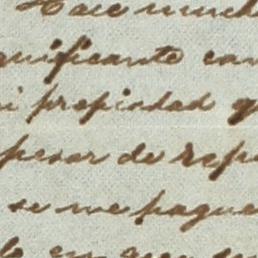 Hace much
gnificante can
i propiedad q
pesar de rep
se me pague